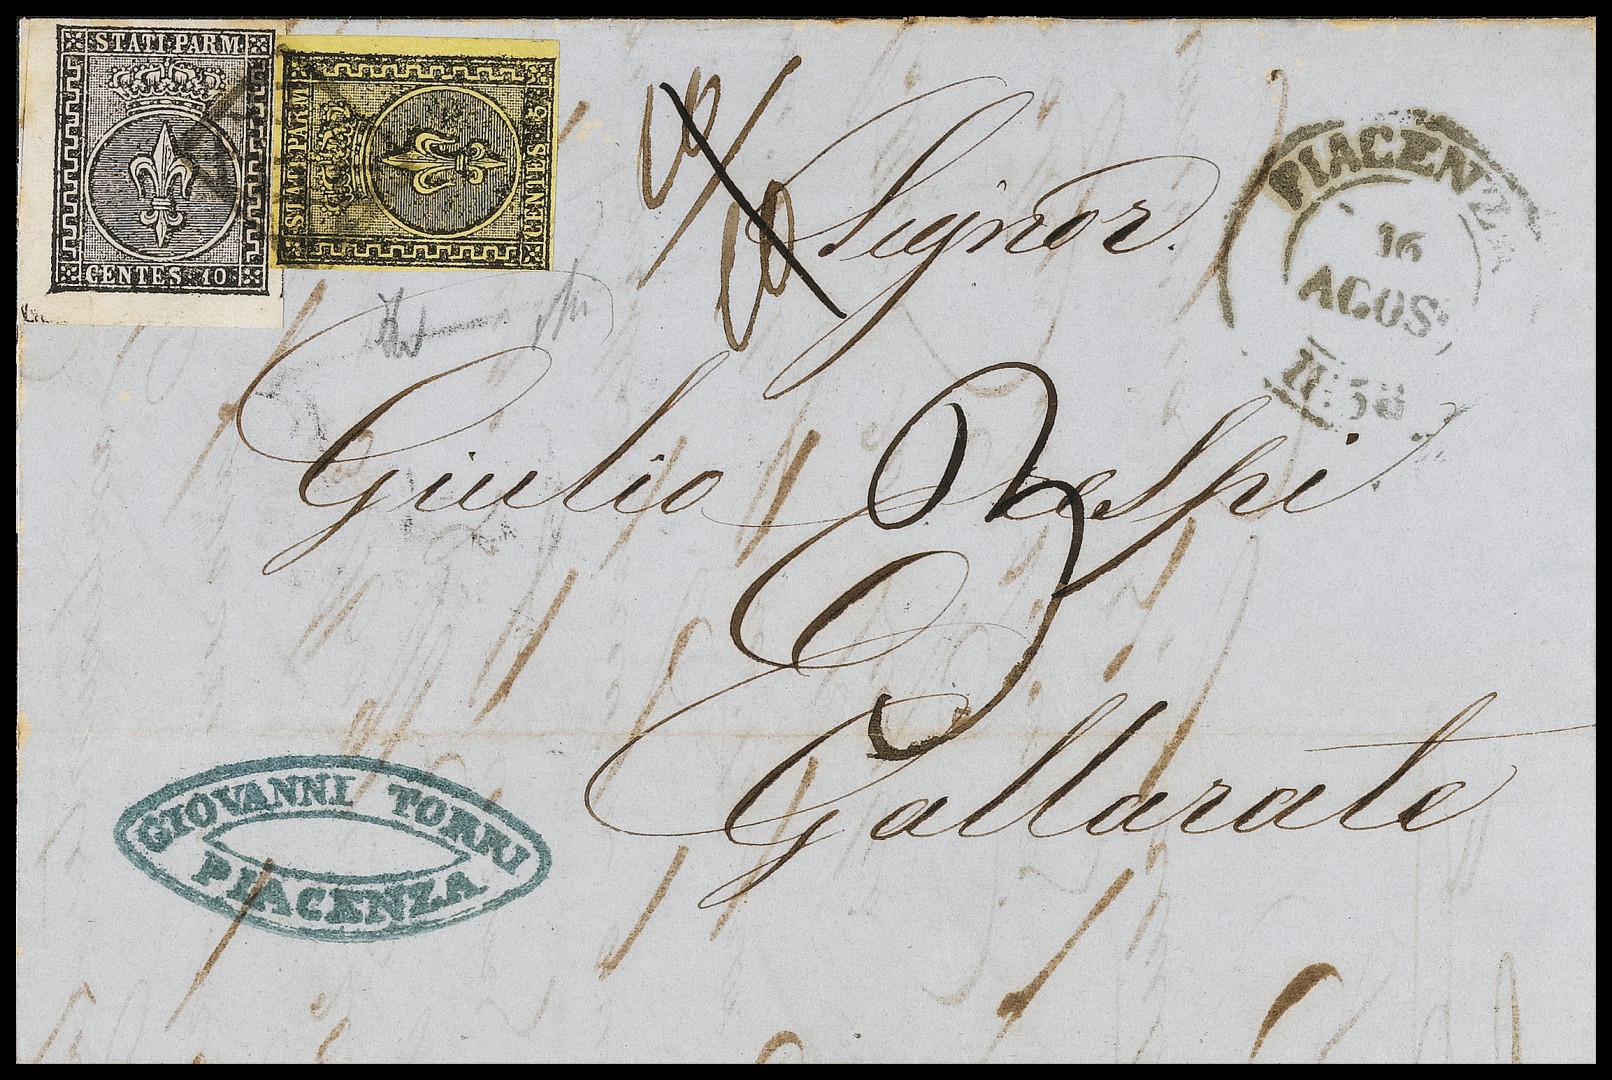 STATI PARM
CENTES. 10
STATI PARM
CENTES. 5
Signor
PIACENZA
16
AGOS
Giulio Crespi
3
Gallarate
GIOVANNI TORRI
PIACENZA